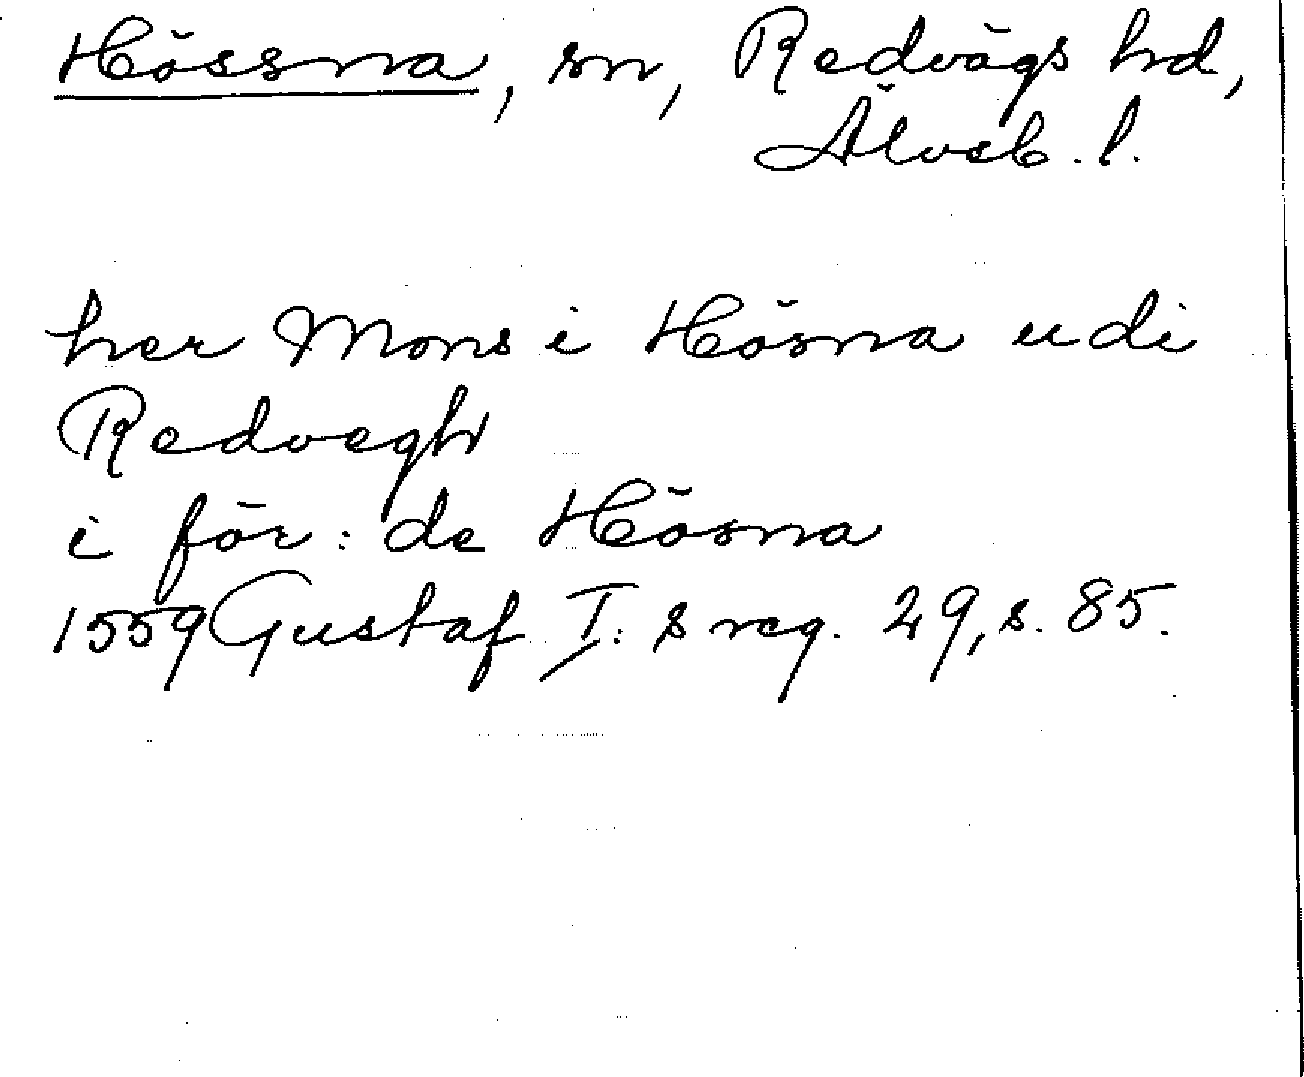 Hössna, sn, Redvägs hd,
Älvsb. l.
her Mons i Hösna udi
Redvegh
i för: de Hösna
1559 Gustaf I: s reg. 29, s. 85.